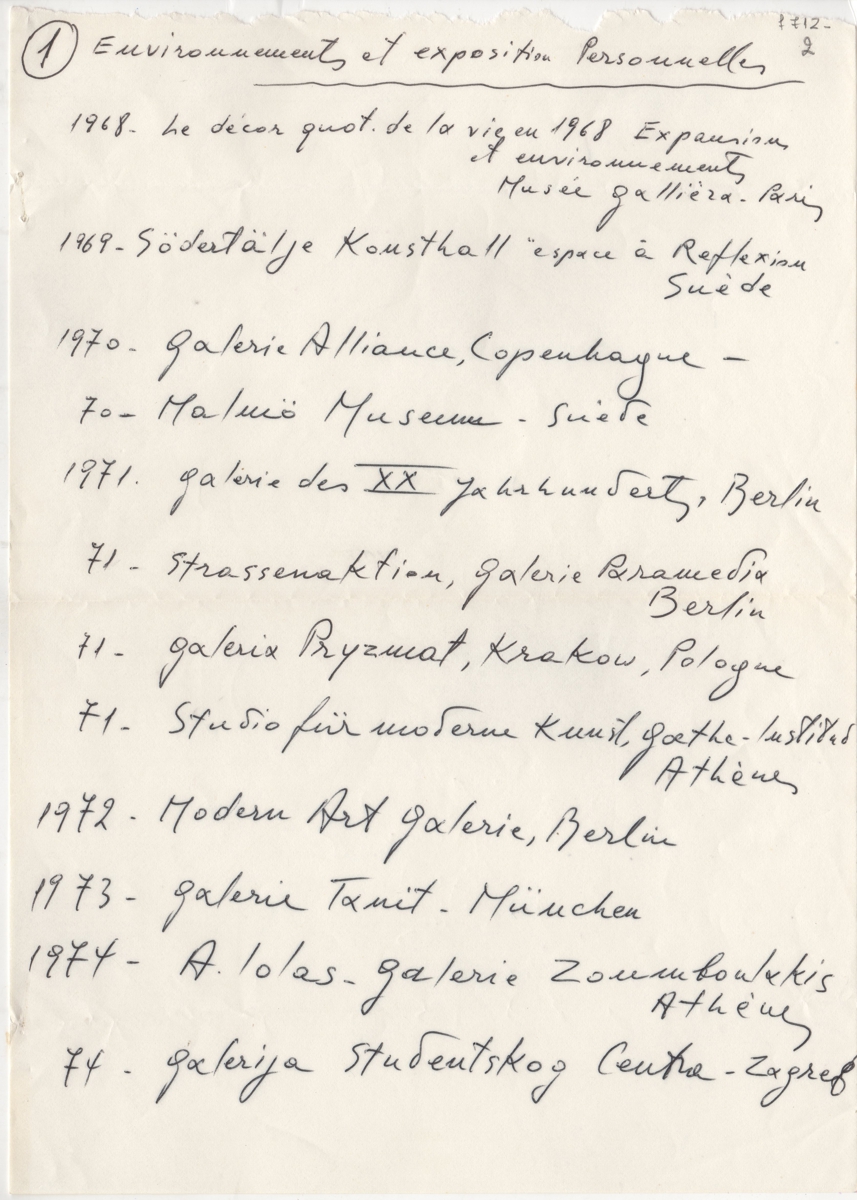 1712-
2
1 Environnements et exposition Personnelles
1968- Le décor quot. de la vie en 1968 Expansion
et environnements
Musée galliéra - Paris
1969- Södertälje Konsthall "espace à Reflexion
Suède
1970- Galerie Alliance, Copenhague -
70- Malmö Museum - Suède
1971. galerie des XX Jahrhunderts, Berlin
71- Strassenaktion, Galerie Paramedia
Berlin
71- galeria Pryzmat, Krakow, Pologne
71- Studio für moderne Kunst, Goethe-Institut
Athènes
1972- Modern Art Galerie, Berlin
1973- galerie Tanit - München
1974- A. Iolas - galerie Zoumboulakis
Athènes
74- galerija Studentskog Centra - Zagreb